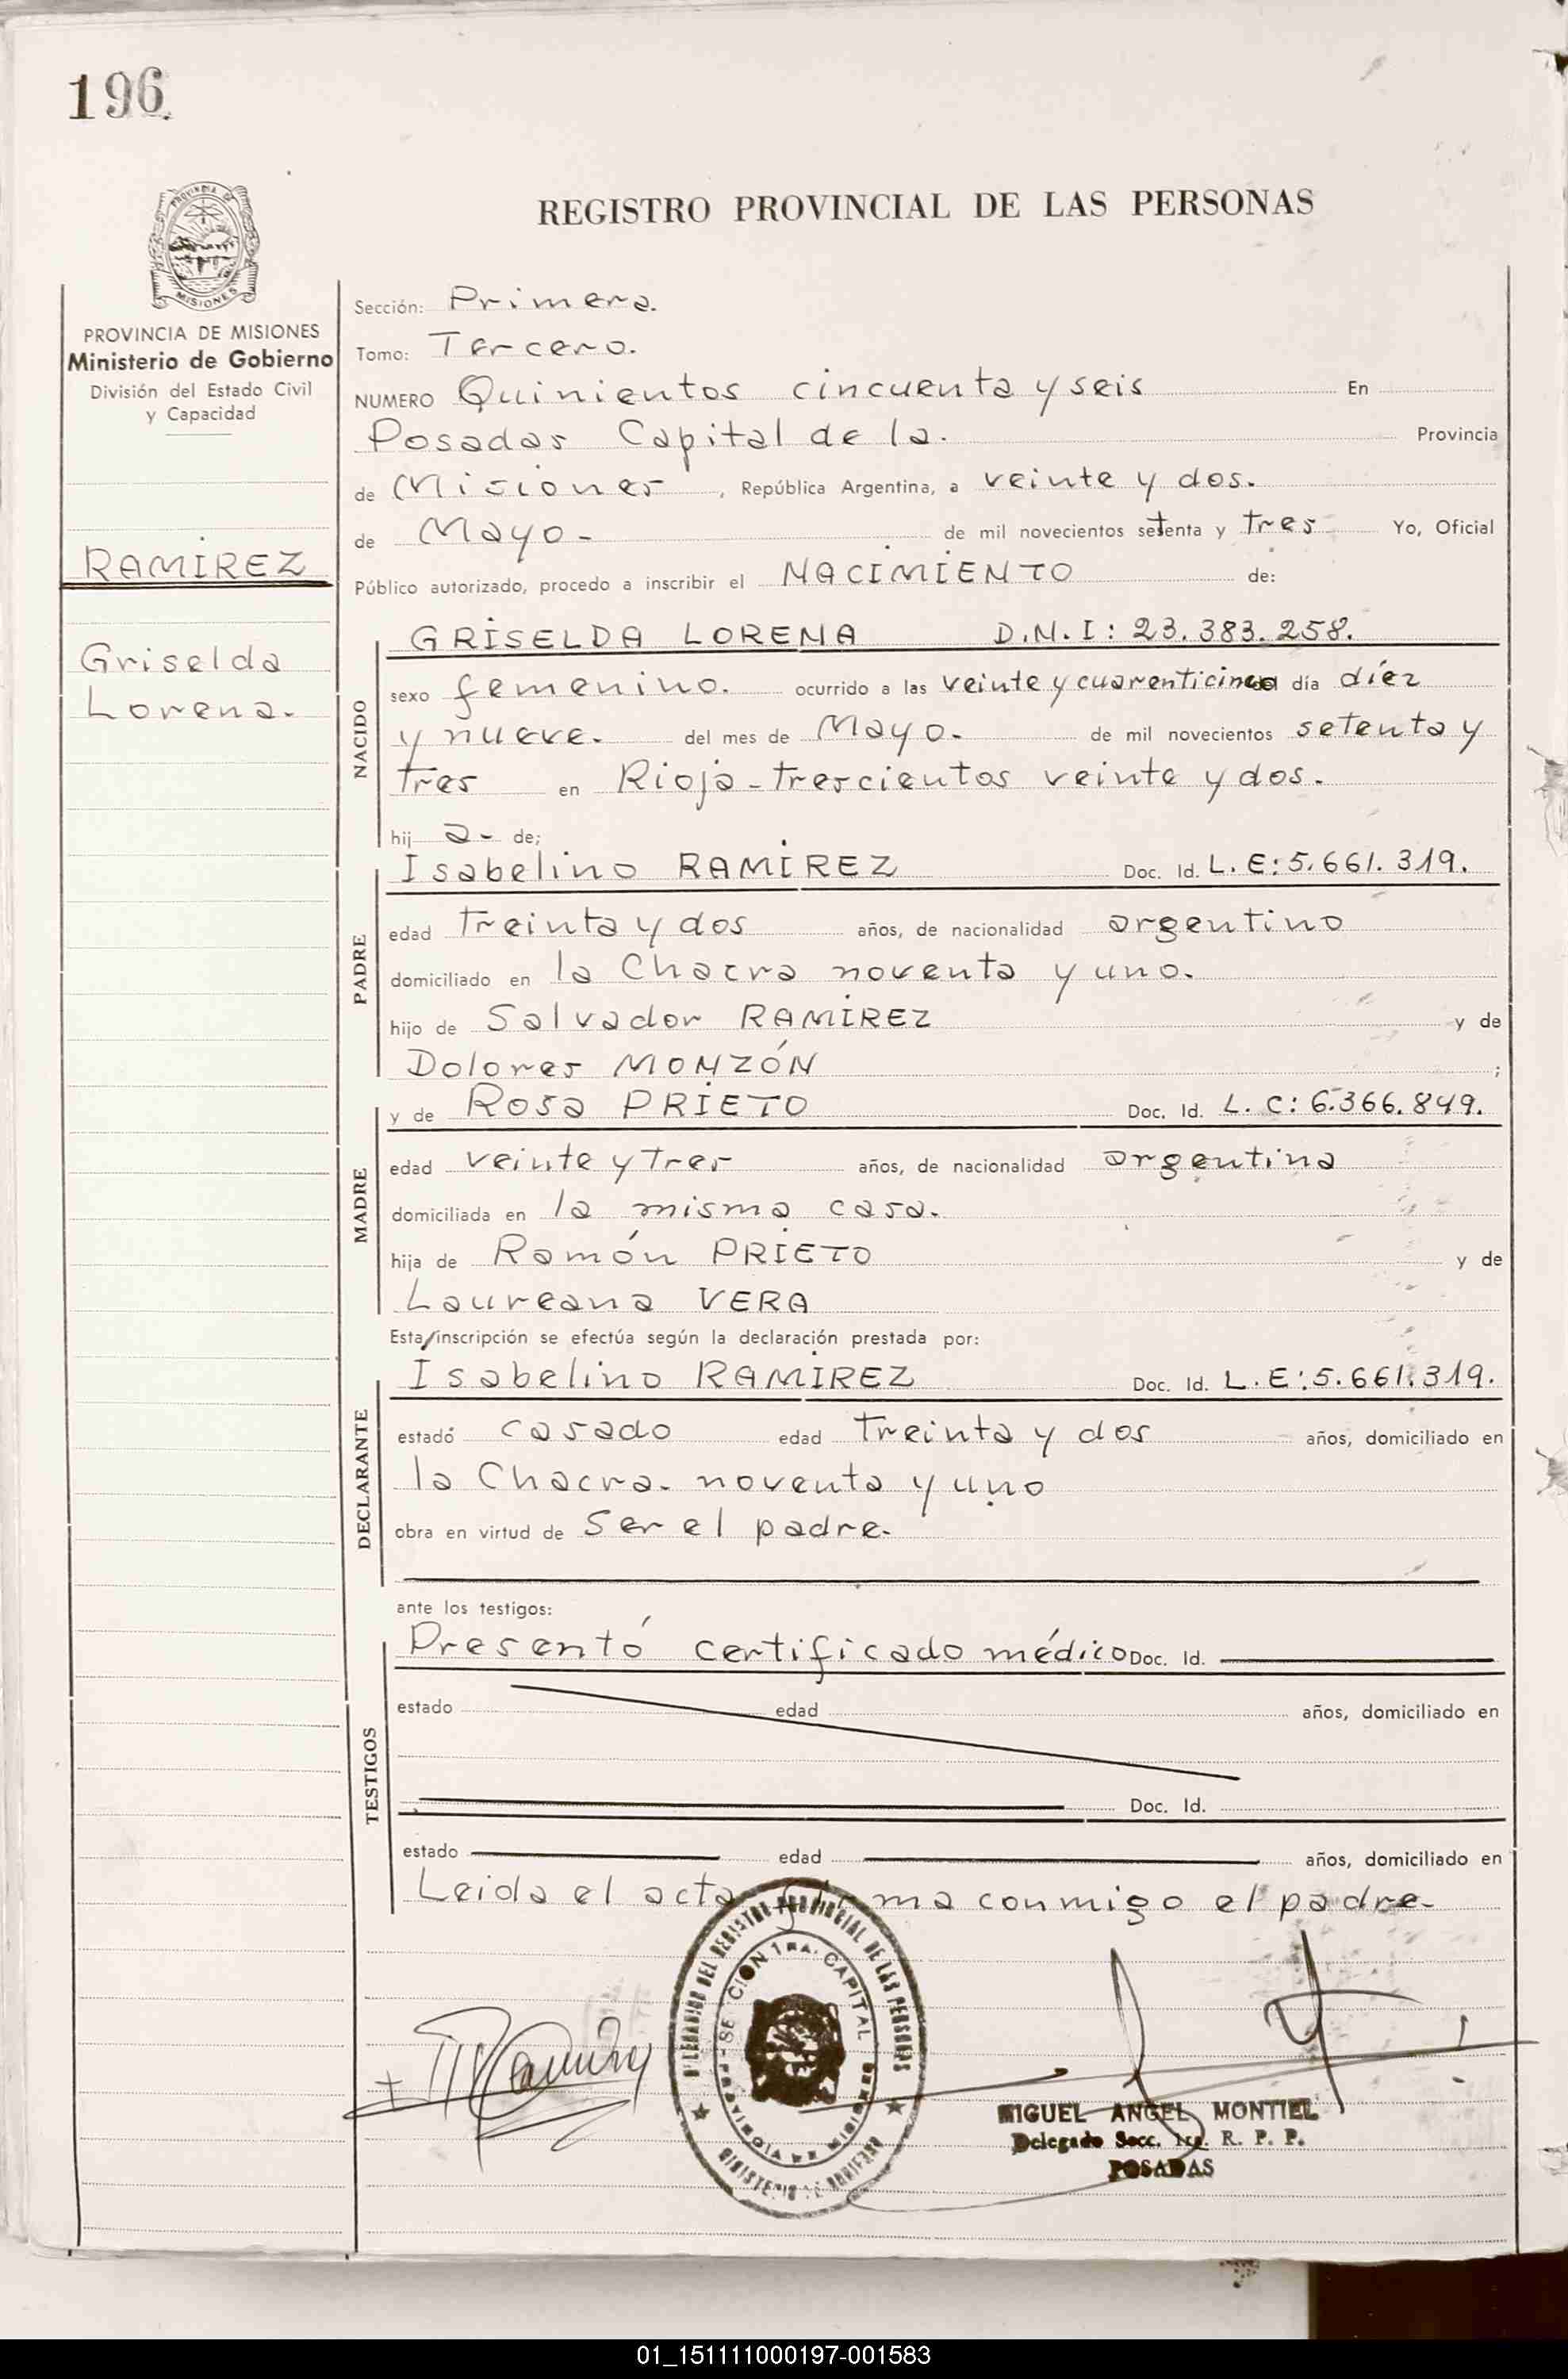 196
REGISTRO PROVINCIAL DE LAS PERSONAS
PROVINCIA DE MISIONES
MISIONES
PROVINCIA DE MISIONES
Ministerio de Gobierno
División del Estado Civil
y Capacidad
RAMIREZ
Griselda
Lorena.
Sección: Primera.
Tomo: Tercero.
NUMERO Quinientos cincuenta y seis En
Posadas Capital de la. Provincia
de Misiones, República Argentina, a veinte y dos.
de Mayo- de mil novecientos setenta y tres Yo, Oficial
Público autorizado, procedo a inscribir el NACIMIENTO de:
NACIDO
GRISELDA LORENA D.N.I: 23.383.258.
sexo femenino. ocurrido a las veinte y cuarenticinco día díez
y nueve. del mes de Mayo. de mil novecientos setenta y
tres en Rioja-trescientos veinte y dos.
hij a- de;
PADRE
Isabelino RAMIREZ Doc. Id. L.E:5.661.319.
edad treinta y dos años, de nacionalidad argentino
domiciliado en la Chacra noventa y uno.
hijo de Salvador RAMIREZ y de
Dolores MONZÓN ;
MADRE
y de Rosa PRIETO Doc. Id. L.C: 6.366.849.
edad veinte y tres años, de nacionalidad argentina
domiciliada en la misma casa.
hija de Ramón PRIETO y de
Laureana VERA
Esta inscripción se efectúa según la declaración prestada por:
DECLARANTE
Isabelino RAMIREZ Doc. Id. L.E:5.661.319.
estado casado edad treinta y dos años, domiciliado en
la Chacra. noventa y uno
obra en virtud de ser el padre.
ante los testigos:
TESTIGOS
Presentó certificado médico Doc. Id.
estado edad años, domiciliado en
Doc. Id.
estado edad años, domiciliado en
Leida el acta firma conmigo el padre.
DEL REGISTRO PROVINCIAL DE LAS PERSONAS
SECCION 1RA. CAPITAL
PROVINCIA DE MISIONES
MINISTERIO DE GOBIERNO
MIGUEL ANGEL MONTIEL
Delegado Secc. 1ra. R. P. P.
POSADAS
01_151111000197-001583